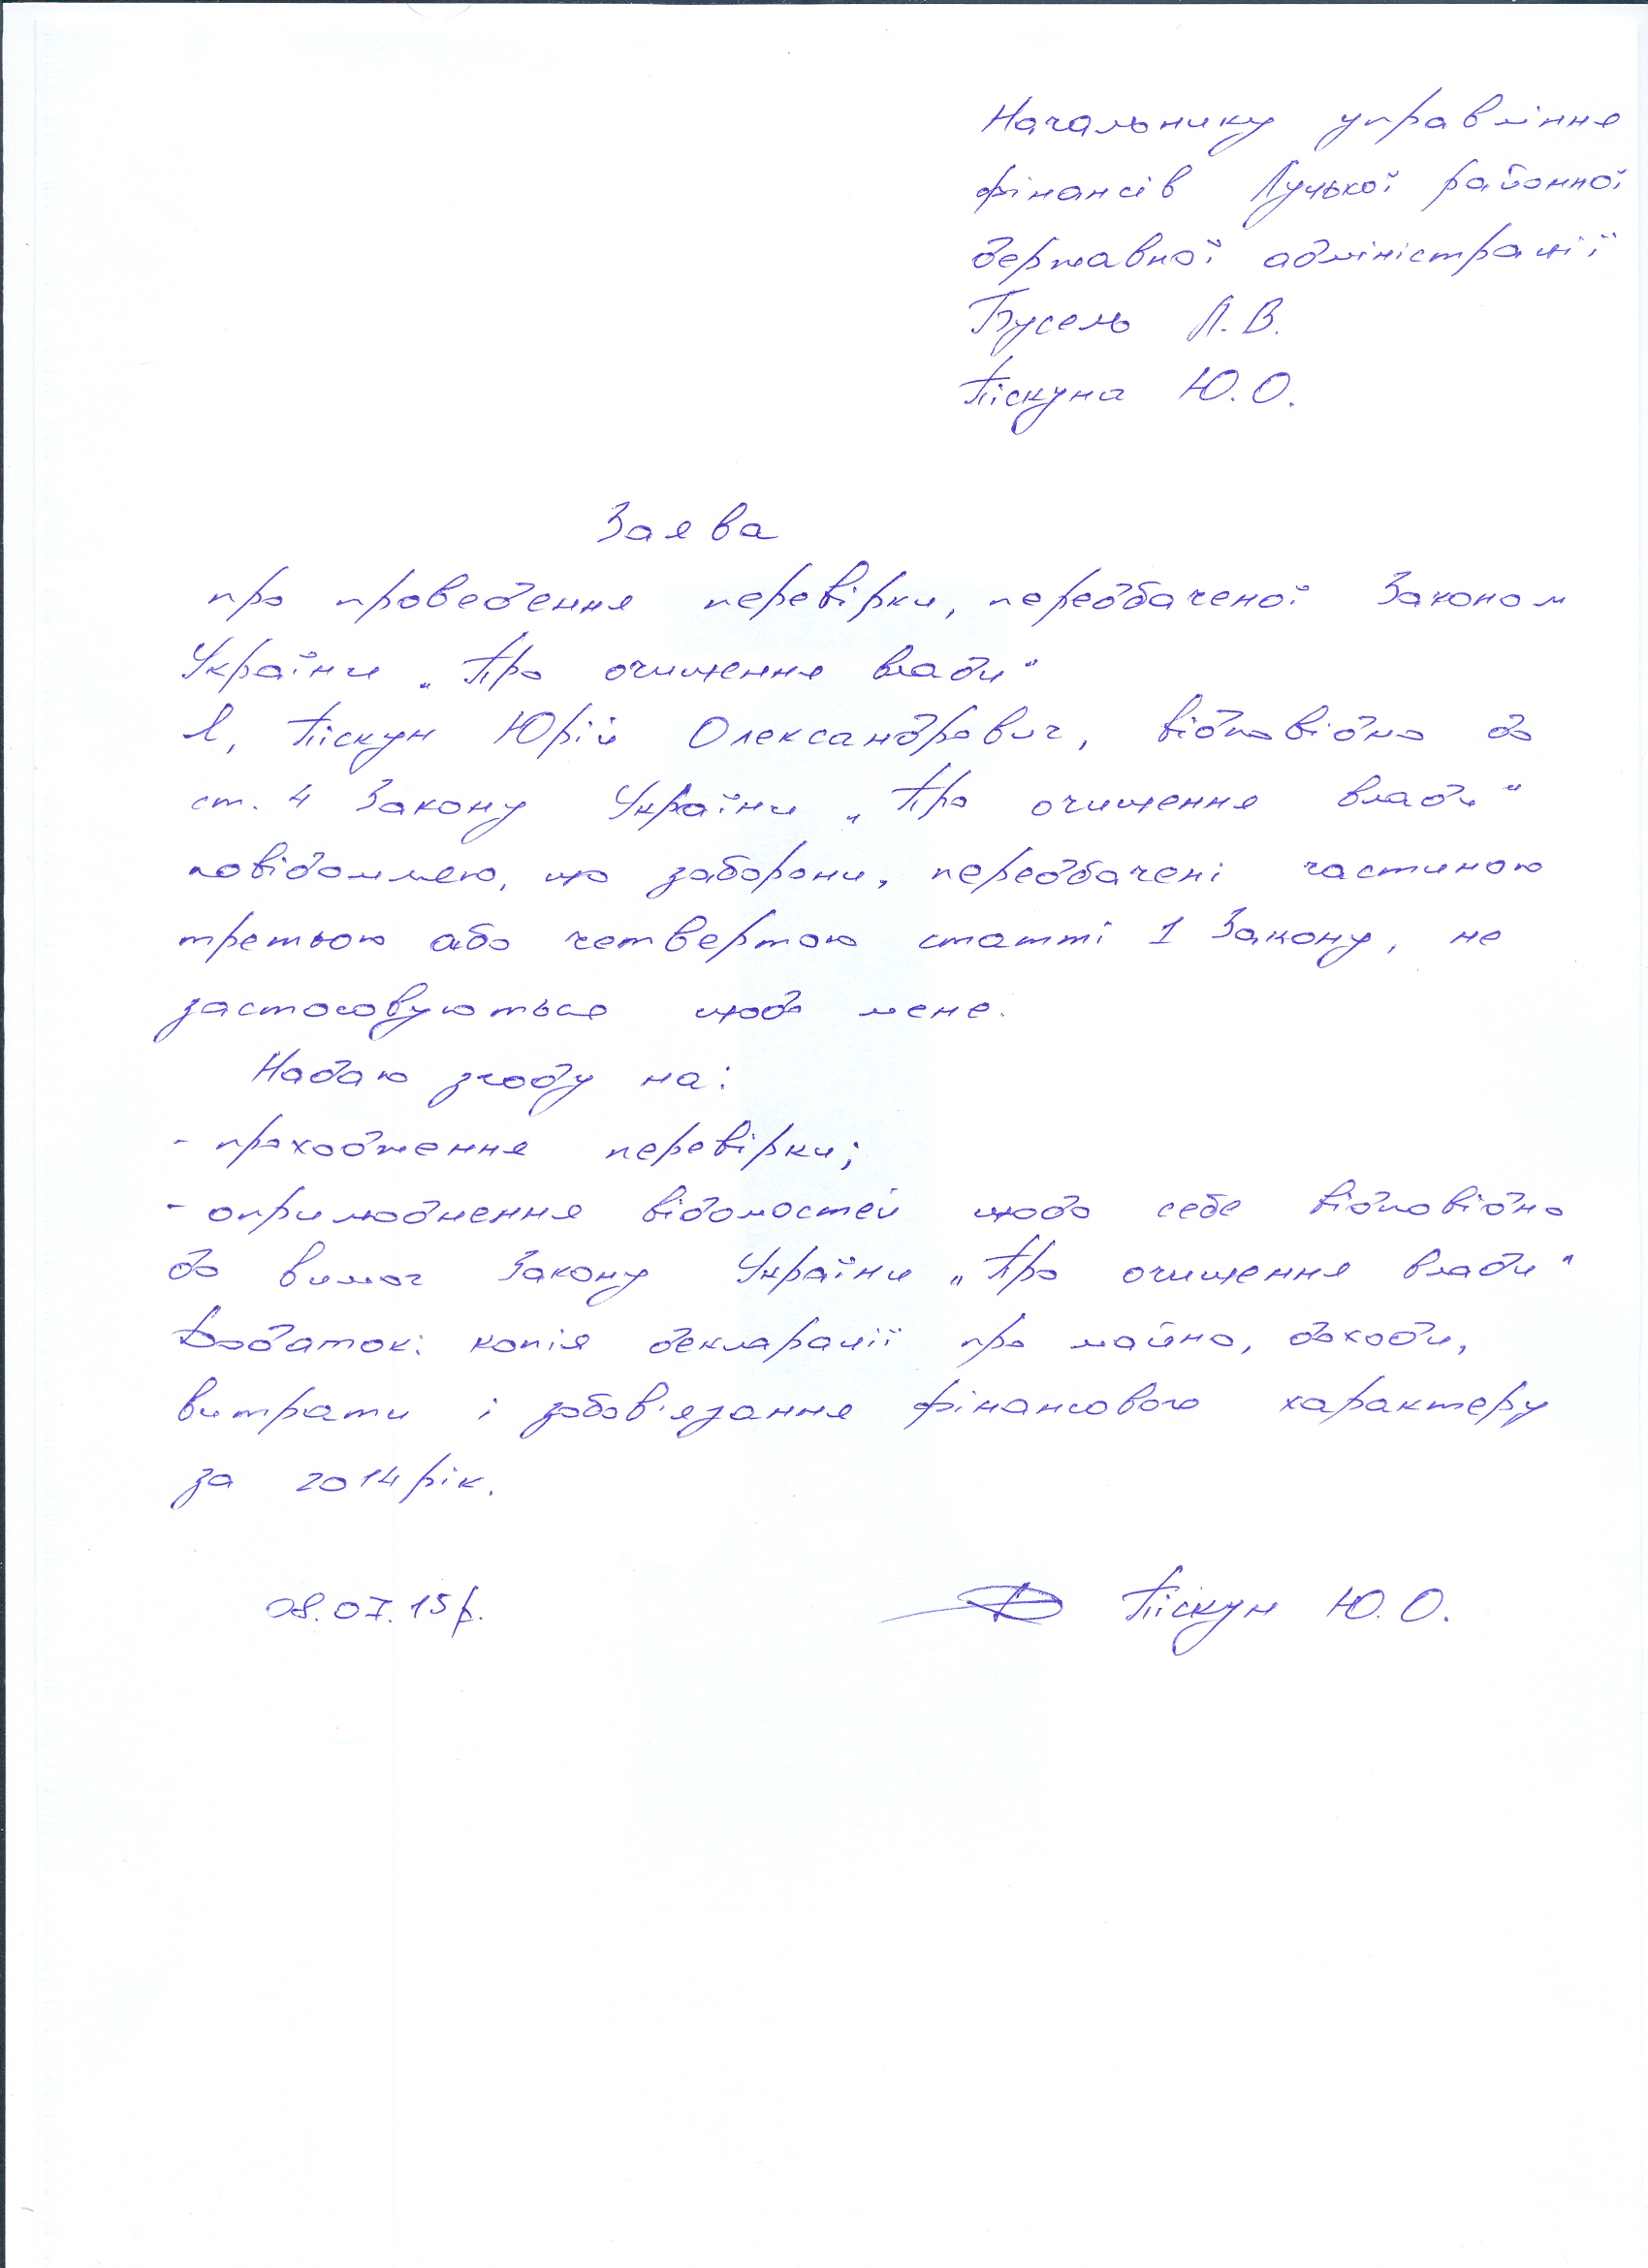 Начальнику управління
фінансів Луцької районної
державної адміністрації
Бусель Л.В.
Піскуна Ю.О.
Заява
про проведення перевірки, передбаченої Законом
України „Про очищення влади"
Я, Піскун Юрій Олександрович, відповідно до
ст. 4 Закону України „Про очищення влади"
повідомляю, що заборони, передбачені частиною
третьою або четвертою статті 1 Закону, не
застосовуються щодо мене.
Надаю згоду на:
- проходження перевірки;
- оприлюднення відомостей щодо себе відповідно
до вимог Закону України „Про очищення влади"
Додаток: копія декларації про майно, доходи,
витрати і зобов'язання фінансового характеру
за 2014 рік.
08.07.15р. Піскун Ю.О.